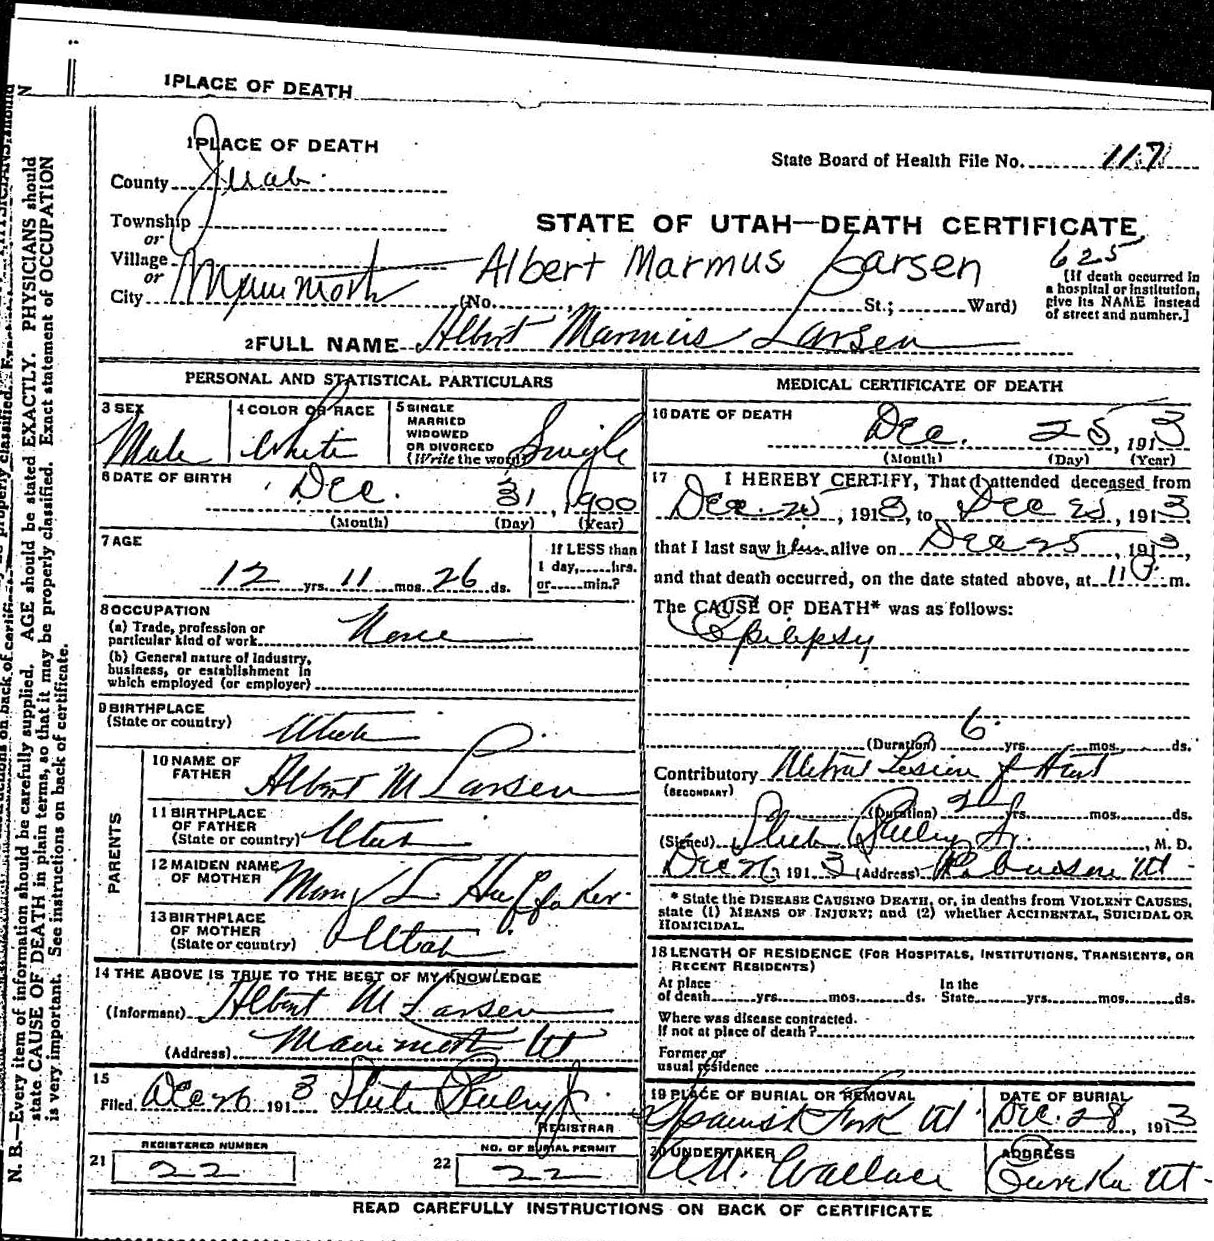 1PLACE OF DEATH
1PLACE OF DEATH
State Board of Health File No. 117
County Juab.
Township
or
STATE OF UTAH—DEATH CERTIFICATE
Village
or
Albert Marmus Larsen 625
City Mammoth (No. St.; Ward)
[If death occurred in
a hospital or institution,
give its NAME instead
of street and number.]
2FULL NAME Albert Marmus Larsen
PERSONAL AND STATISTICAL PARTICULARS
3 SEX Male
4 COLOR OR RACE White
5 SINGLE
MARRIED
WIDOWED
OR DIVORCED
(Write the word) Single
6 DATE OF BIRTH Dec. 31, 1900
(Month) (Day) (Year)
7 AGE
12 yrs. 11 mos. 26 ds.
If LESS than
1 day, hrs.
or min.?
8 OCCUPATION
(a) Trade, profession or
particular kind of work None
(b) General nature of industry,
business, or establishment in
which employed (or employer)
9 BIRTHPLACE
(State or country) Utah
PARENTS
10 NAME OF
FATHER Albert M Larsen
11 BIRTHPLACE
OF FATHER
(State or country) Utah
12 MAIDEN NAME
OF MOTHER Mary L Huffaker
13 BIRTHPLACE
OF MOTHER
(State or country) Utah
14 THE ABOVE IS TRUE TO THE BEST OF MY KNOWLEDGE
(Informant) Albert M Larsen
(Address) Mammoth Ut
15
Filed Dec 26 1913
REGISTRAR
REGISTERED NUMBER
21 22
NO. OF BURIAL PERMIT
22 22
MEDICAL CERTIFICATE OF DEATH
16 DATE OF DEATH
Dec. 25, 1913
(Month) (Day) (Year)
17 I HEREBY CERTIFY, That I attended deceased from
Dec. 25, 1913, to Dec 25, 1913
that I last saw him alive on Dec 25, 1913,
and that death occurred, on the date stated above, at 11 m.
The CAUSE OF DEATH* was as follows:
Epilepsy
(Duration) 6 yrs. mos. ds.
Contributory Mitral Lesion of Heart
(SECONDARY)
(Duration) 2 yrs. mos. ds.
(Signed) , M. D.
Dec 26 1913 (Address) Robinson Ut
* State the DISEASE CAUSING DEATH, or, in deaths from VIOLENT CAUSES,
state (1) MEANS OF INJURY; and (2) whether ACCIDENTAL, SUICIDAL OR
HOMICIDAL.
18 LENGTH OF RESIDENCE (FOR HOSPITALS, INSTITUTIONS, TRANSIENTS, OR
RECENT RESIDENTS)
At place
of death yrs. mos. ds.
In the
State yrs. mos. ds.
Where was disease contracted.
If not at place of death?
Former or
usual residence
19 PLACE OF BURIAL OR REMOVAL
Spanish Fork Ut
DATE OF BURIAL
Dec. 28, 1913
20 UNDERTAKER
Wallace
ADDRESS
Eureka Ut.
READ CAREFULLY INSTRUCTIONS ON BACK OF CERTIFICATE
N. B.—Every item of information should be carefully supplied. AGE should be stated EXACTLY. PHYSICIANS should
state CAUSE OF DEATH in plain terms, so that it may be properly classified. Exact statement of OCCUPATION
is very important. See instructions on back of certificate.